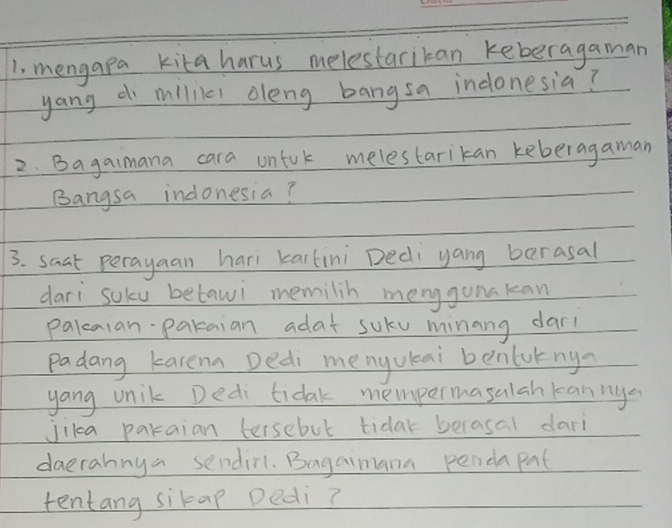 1. mengapa kita harus melestarikan keberagaman
yang di miliki oleng bangsa indonesia?
2. Bagaimana cara untuk melestarikan keberagaman
Bangsa indonesia?
3. saat perayaan hari kartini Dedi yang berasal
dari suku betawi memilih menggunakan
pakaian-pakaian adat suku minang dari
padang karena Dedi menyukai bentuknya
yang unik Dedi tidak mempermasalahkannya
jika pakaian tersebut tidak berasal dari
daerahnya sendiri. Bagaimana pendapat
tentang sikap Dedi?